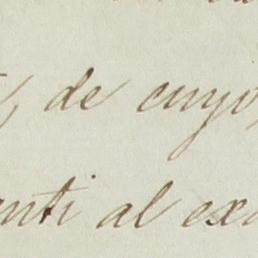 , de cuyo
enti al exa